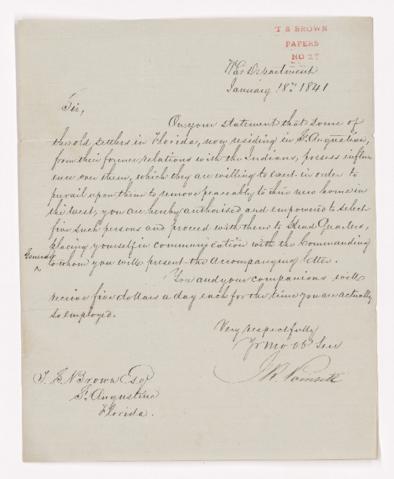 T S BROWN
PAPERS
NO 27
War Department
January 18th 1841
Sir,
On your statement that some of
the old settlers in Florida, now residing in St. Augustine,
from their former relations with the Indians, possess influ
ence over them, which they are willing to exert in order to
prevail upon them to remove peaceably to their new home in
the west, you are hereby authorised and empowered to select
five such persons and proceed with them to Head Quarters,
placing yourself in communication with the Commanding
General
to whom you will present the accompanying letter.
You and your companions will
receive five dollars a day each for the time you are actually
so employed.
Very respectfully
Yr Mo Ob Ser
J R Poinsett
Brown Esq
St. Augustine
Florida.